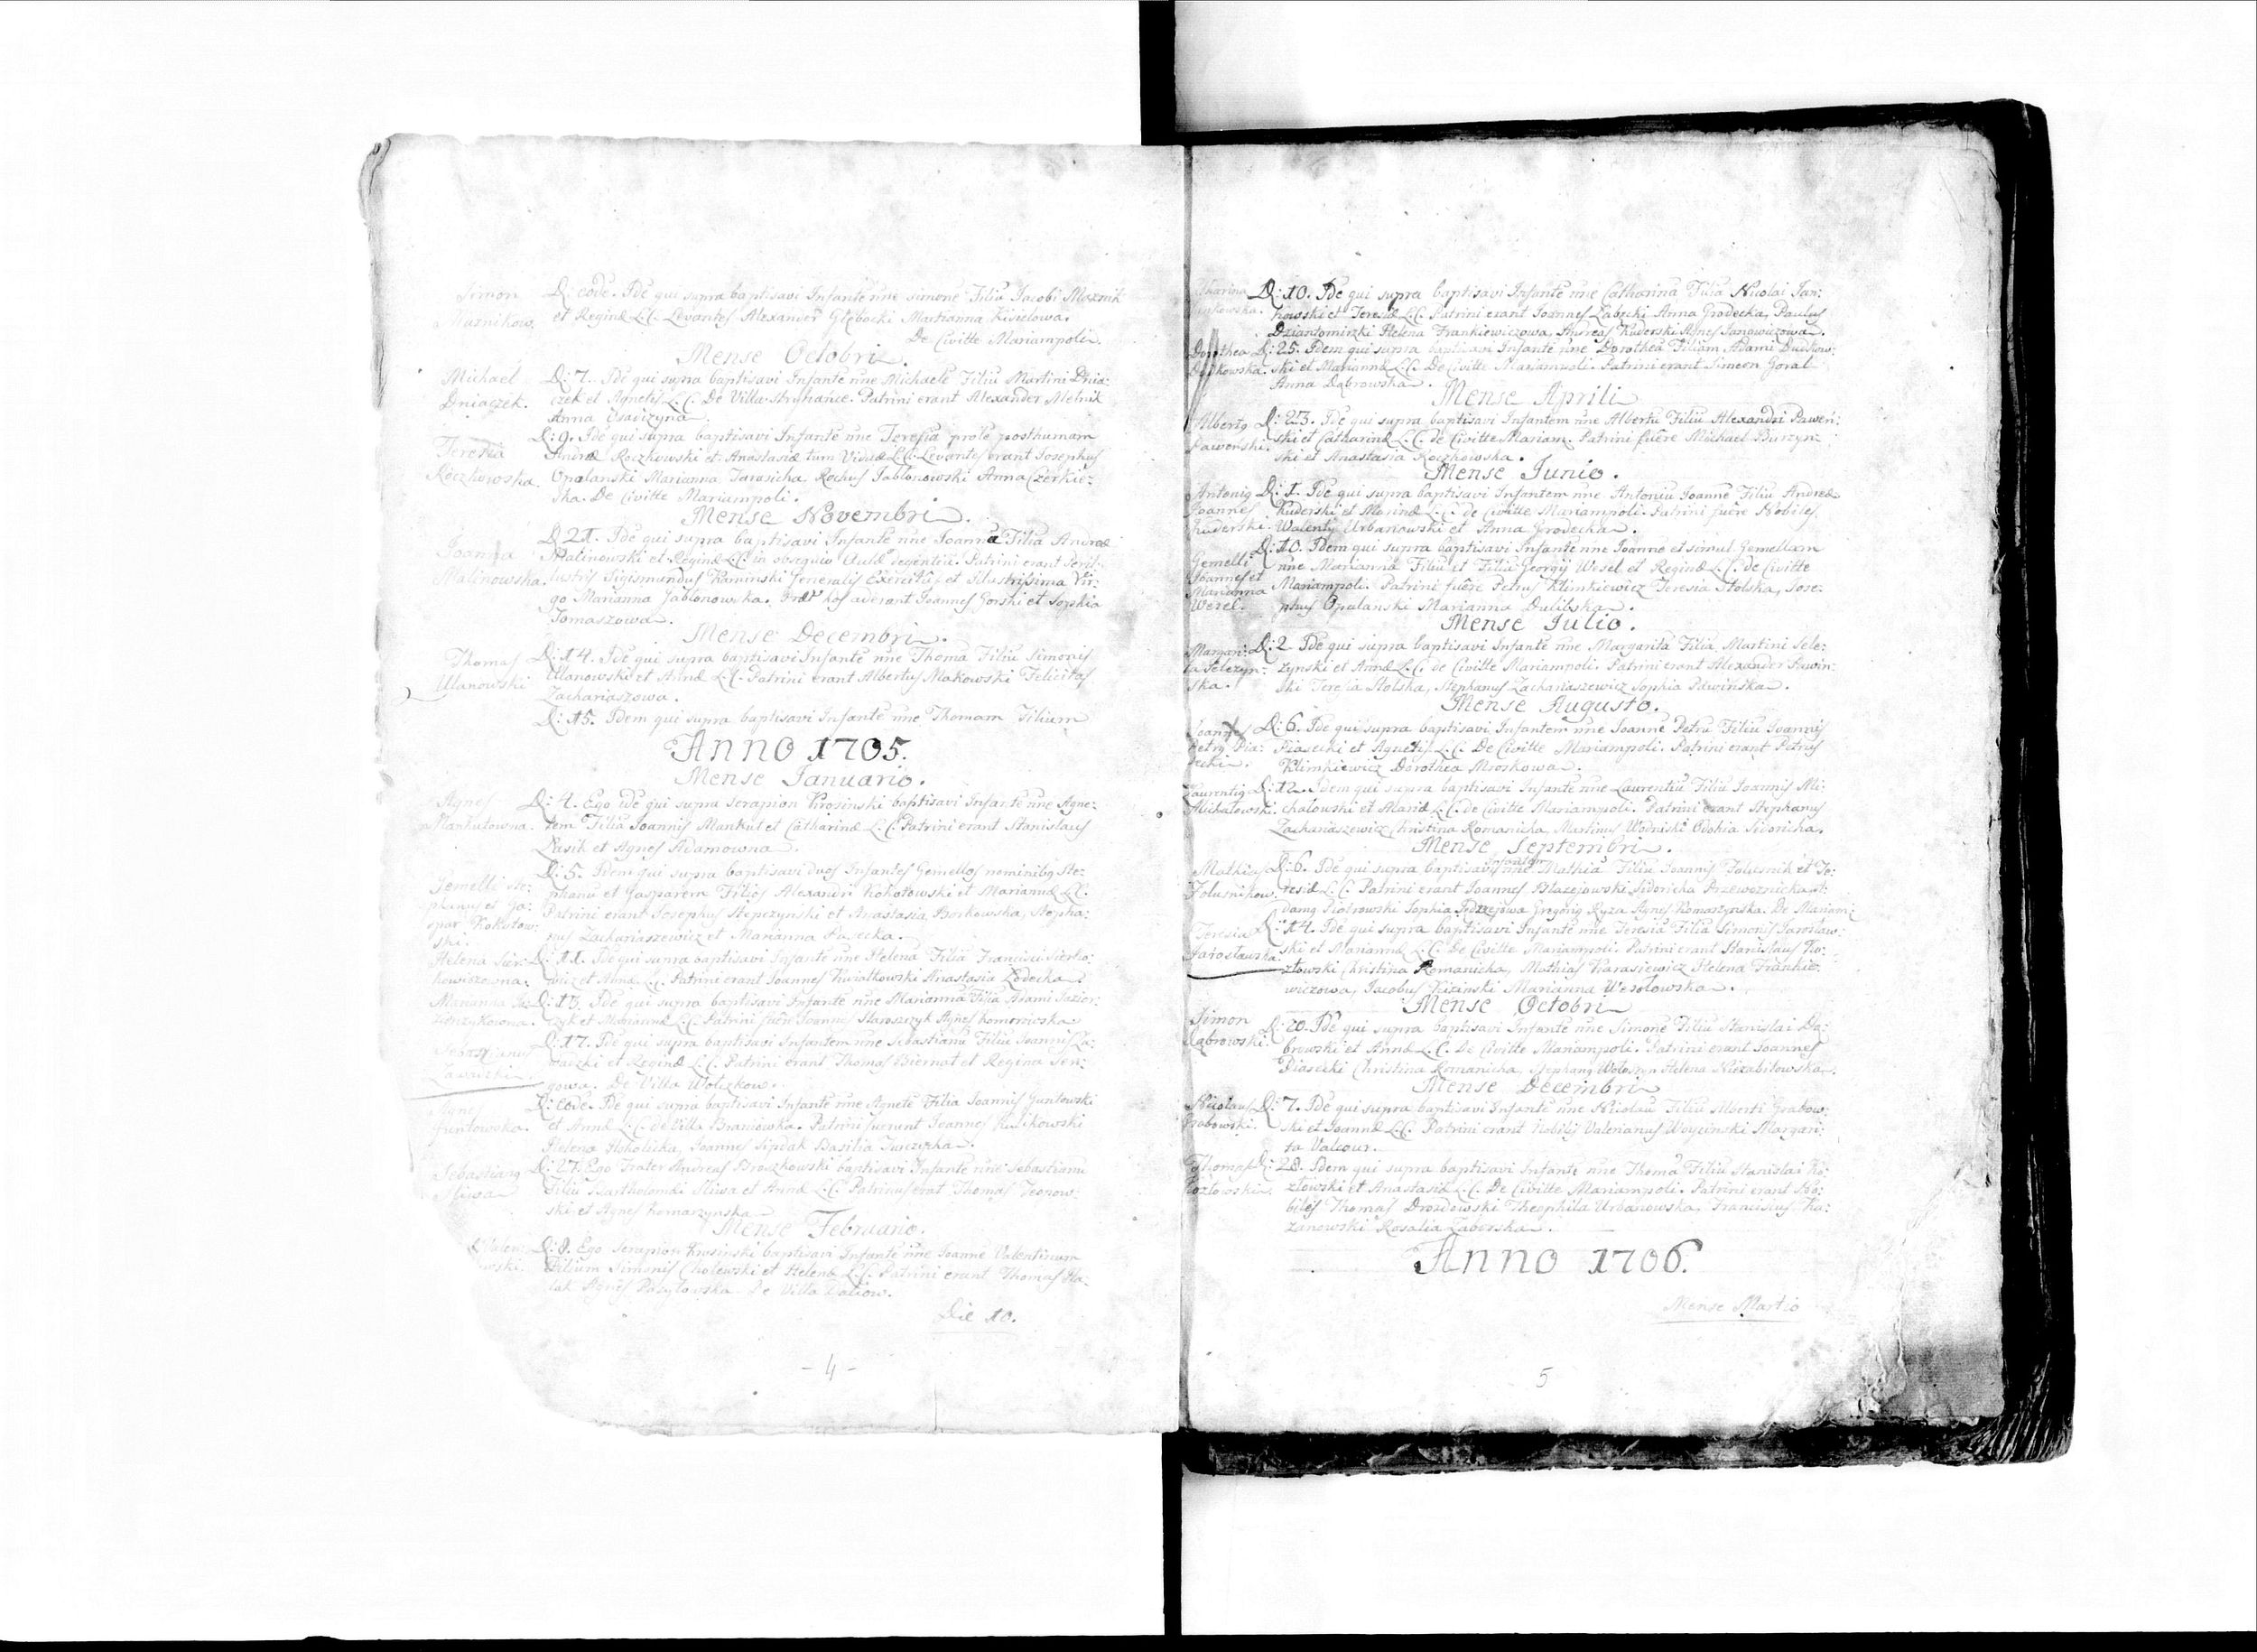 Simon
Maznikow.
D: eode. Ide qui supra baptisavi Infante nne Simone Filiu Jacobi Maznik
et Reginæ L.C. Levantes Alexander Głębocki Marianna Kisielowa.
De Civitte Mariampoli.
Mense Octobri.
Michael
Dniaczek.
D: 7. Ide qui supra baptisavi Infante nne Michaele Filiu Martini Dnia:
czek et Agnetis L.C. De Villa Stryhańce. Patrini erant Alexander Melnik
Anna Isaiczyna
Teresia
Roczkowska.
D: 9. Ide qui supra baptisavi Infante nne Teresia prole posthumam
Andreæ Roczkowski et Anastasiæ tum Viduæ L.C. Levantes erant Josephus
Opalanski Marianna Jarosicha Rochus Jabłonowski Anna Czerkie:
ska. De Civitte Mariampoli.
Mense Novembri.
Joanna
Malinowska.
D: 21. Ide qui supra baptisavi Infante nne Joanna Filia Andreæ
Malinowski et Reginæ L.C. in obsequio Aulæ degentiu. Patrini erant Peril:
lustris Sigismundus Kaminski Generalis Exercitus et Illustrissima Vir:
go Marianna Jabłonowska. Præt hos aderant Joannes Gorski et Sophia
Tomaszowa.
Mense Decembri.
Thomas
Ulanowski
D: 14. Ide qui supra baptisavi Infante nne Thoma Filiu Simonis
Ulanowski et Annæ L.C. Patrini erant Albertus Makowski Felicitas
Zachariaszowa.
D: 15. Idem qui supra baptisavi Infante nne Thomam Filium
Anno 1705.
Mense Januario.
Agnes
Mankutowna.
D: 4. Ego ide qui supra Serapion Krosinski baptisavi Infante nne Agne:
tem Filia Joannis Mankut et Catharinæ L.C. Patrini erant Stanislaus
Lasik et Agnes Adamowna.
Gemelli Ste:
phanus et Ga:
spar Kokotow:
ski.
D: 5. Idem qui supra baptisavi duos Infantes Gemellos nominibq Ste:
phanu et Gasparem Filios Alexandri Kokotowski et Mariannæ L.C.
Patrini erant Josephus Stepczynski et Anastasia Borkowska, Stepha:
nus Zachariaszewicz et Marianna Pasecka.
Helena Sier:
kowiczowna:
D: 11. Ide qui supra baptisavi Infante nne Helena Filia Francisci Sierko:
wicz et Annæ L.C. Patrini erant Joannes Kwiatkowski Anastasia
Marianna
D: 13. Ide qui supra baptisavi Infante nne Marianna Filia Adami Jazier:
czyk et Mariannæ L.C. Patrini fuere Joannes Staroszczyk Agnes Komorowska.
Sebastianus
Zawadzki.
D: 17. Ide qui supra baptisavi Infantem nne Sebastianu Filiu Joannis Za:
wadzki et Reginæ L.C. Patrini erant Thomas Biernat et Regina Sen:
gowa. De Villa Wolczkow.
Agnes
Guntowska.
D: eode. Ide qui supra baptisavi Infante nne Agnete Filia Joannis Guntowski
et Annæ L.C. de Villa Braniowka. Patrini fuerunt Joannes
Helena Joannes Basilia
Sebastianq
Sliwa
D: 27. Ego Frater Andreas Broszkowski baptisavi Infante nne Sebastianu
Filiu Bartholomæi Sliwa et Annæ L.C. Patrinus erat Thomas Leonow:
ski et Agnes Komarzynska
Mense Februario.
D: 8. Ego Serapion Krosinski baptisavi Infante nne Joanne Valentinum
Filium Simonis Cholewski et Helenæ L.C. Patrini erant Thomas
Agnes De Villa
Die 10.
- 4 -
D: 10. Ide qui supra baptisavi Infante nne Catharina Filia Nicolai Jan:
kowski et Teresiæ L.C. Patrini erant Joannes Ząbecki Anna Grodecka, Paulus
Dziantomirzki Helena Frankiewiczowa, Andreas Kuderski Agnes Janowiczowa.
Dorothea
Dudkowska.
D: 25. Idem qui supra baptisavi Infante nne Dorothea Filiam Adami Dudkow:
ski et Mariannæ L.C. De Civitte Mariampoli. Patrini erant Simeon Goral
Anna Dąbrowska.
Mense Aprili
Albertq
Pawenski.
D: 23. Ide qui supra baptisavi Infantem nne Albertu Filiu Alexandri Paweń:
ski et Catharinæ L.C. de Civitte Mariam. Patrini fuere Michael Burzyn:
ski et Anastasia Roczkowska.
Mense Junio.
Antoniq
Joannes
Kuderski.
D: 1. Ide qui supra baptisavi Infantem nne Antoniu Joanne Filiu Andreæ
Kuderski et Marinæ L.C. de Civitte Mariampoli. Patrini fuere Nobiles
Walenty Urbanowski et Anna Grodecka.
Gemelli
Joannes et
Marianna
Wesel.
D: 10. Idem qui supra baptisavi Infante nne Joanne et simul Gemellam
nne Marianna Filiu et Filia Georgij Wesel et Reginæ L.C. de Civitte
Mariampoli. Patrini fuere Petrus Klimkiewicz Teresia Stolska, Jose:
phus Opalanski Marianna Dulibska.
Mense Julio.
Margari:
ta Selezyn:
ska.
D: 2. Ide qui supra baptisavi Infante nne Margarita Filia Martini Sele:
zynski et Annæ L.C. de Civitte Mariampoli. Patrini erant Alexander Pawin:
ski Teresia Stolska, Stephanus Zachariaszewicz Sophia Pawinska.
Mense Augusto.
Joannes
Petrq Pia:
secki.
D: 6. Ide qui supra baptisavi Infantem nne Joanne Petru Filiu Joannis
Piasecki et Agnetis L.C. De Civitte Mariampoli. Patrini erant Petrus
Klimkiewicz Dorothea Mroskowa.
Laurentiq
Michałowski.
D: 12. Idem qui supra baptisavi Infante nne Laurentiu Filiu Joannis Mi:
chałowski et Mariæ L.C. de Civitte Mariampoli. Patrini erant Stephanus
Zachariaszewicz Christina Romanicha, Martinus Wodnicki Odokia Sidoricha.
Mense Septembri.
Mathias
Folusnikow
D: 6. Ide qui supra baptisavi Infantem nne Mathia Filiu Joannis Folusnik et Te:
resiæ L.C. Patrini erant Joannes Błazejowski Sidoricha Przewoznicka, A:
damq Piotrowski Sophia Jędrzejowa Gregoriq Ryza Agnes Komarzynska. De Mariam:
Teresia
Jarosławska.
D: 14. Ide qui supra baptisavi Infante nne Teresia Filia Simonis Jarosław:
ski et Mariannæ L.C. De Civitte Mariampoli. Patrini erant Stanislaus Ko:
złowski Christina Romanicha, Mathias Karasiewicz Helena Frankie:
wiczowa, Jacobus Kicinski Marianna Wesołowska.
Mense Octobri
Simon
Dąbrowski.
D: 20. Ide qui supra baptisavi Infante nne Simone Filiu Stanislai Dą:
browski et Annæ L.C. De Civitte Mariampoli. Patrini erant Joannes
Piasecki Christina Romanicha, Stephanq Wołoszyn Helena Niezabitowska.
Mense Decembri
Nicolaus
Grabowski.
D: 7. Ide qui supra baptisavi Infante nne Nicolau Filiu Alberti Grabow:
ski et Joannæ L.C. Patrini erant Nobilis Valerianus Woyzinski Margari:
ta Valcour.
Thomas
Kozłowski.
D: 28. Idem qui supra baptisavi Infante nne Thoma Filiu Stanislai Ko:
złowski et Anastasiæ L.C. De Civitte Mariampoli. Patrini erant No:
biles Thomas Drozdowski Theophila Urbanowska, Franciscus Ka:
zanowski Rosalia Zaborska.
Anno 1706.
Mense Martio
5